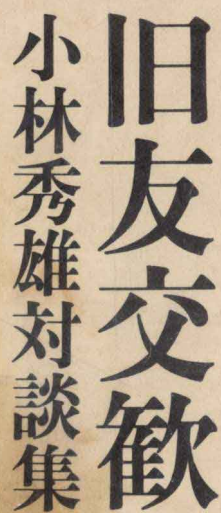 旧友交歓
小林秀雄対談集